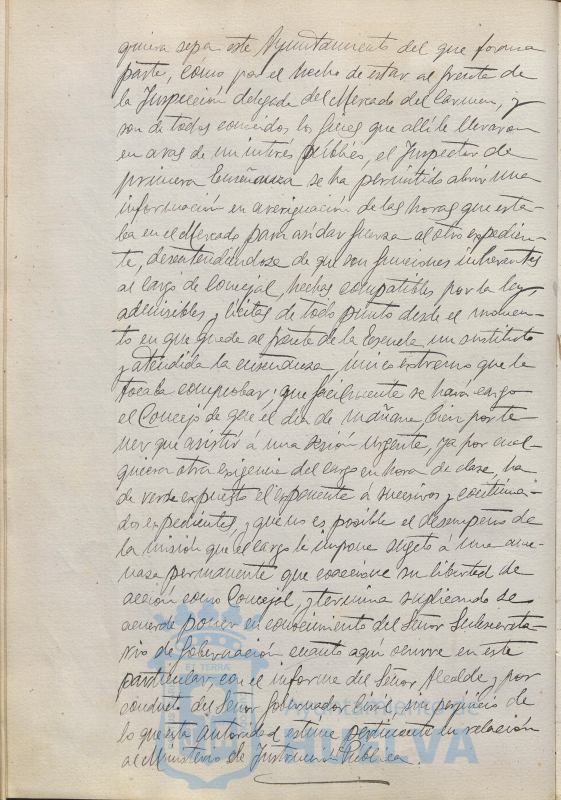 quiera sepa este Ayuntamiento del que forma
parte, como por el hecho de estar al frente de
la Inspección delegada del Mercado del Carmen, y
son de todos conocidos los fines que allí le llevaron
en aras de un interés público, el Inspector de
primera Enseñanza se ha permitido abrir una
información en averiguación de las horas que esta-
ba en el Mercado para así dar fuerza al otro expedien-
te, desentendiéndose de que son funciones inherentes
al cargo de Concejal, hechos compatibles por la ley,
admisibles y lícitas de todo punto desde el momen-
to en que quede al frente de la Escuela un sustituto
y atendida la enseñanza, único extremo que le
tocaba comprobar; que fácilmente se hará cargo
el Concejo de que el día de mañana, bien por te-
ner que asistir á una sesión urgente, ya por cual-
quiera otra exigencia del cargo en hora de clase, ha
de verse expuesto el exponente á sucesivos y continua-
dos expedientes, y que no es posible el desempeño de
la misión que el cargo le impone sujeto á una ame-
naza permanente que coaccione su libertad de
acción como Concejal, y termina suplicando se
acuerde poner en conocimiento del Señor Subsecreta-
rio de Gobernación cuanto aquí ocurre en este
particular, con el informe del Señor Alcalde y por
conducto del Señor Gobernador Civil, sin perjuicio de
lo que esta autoridad estime pertinente en relación
al Ministerio de Instrucción Pública.
ET TERRÆ
HUELVA